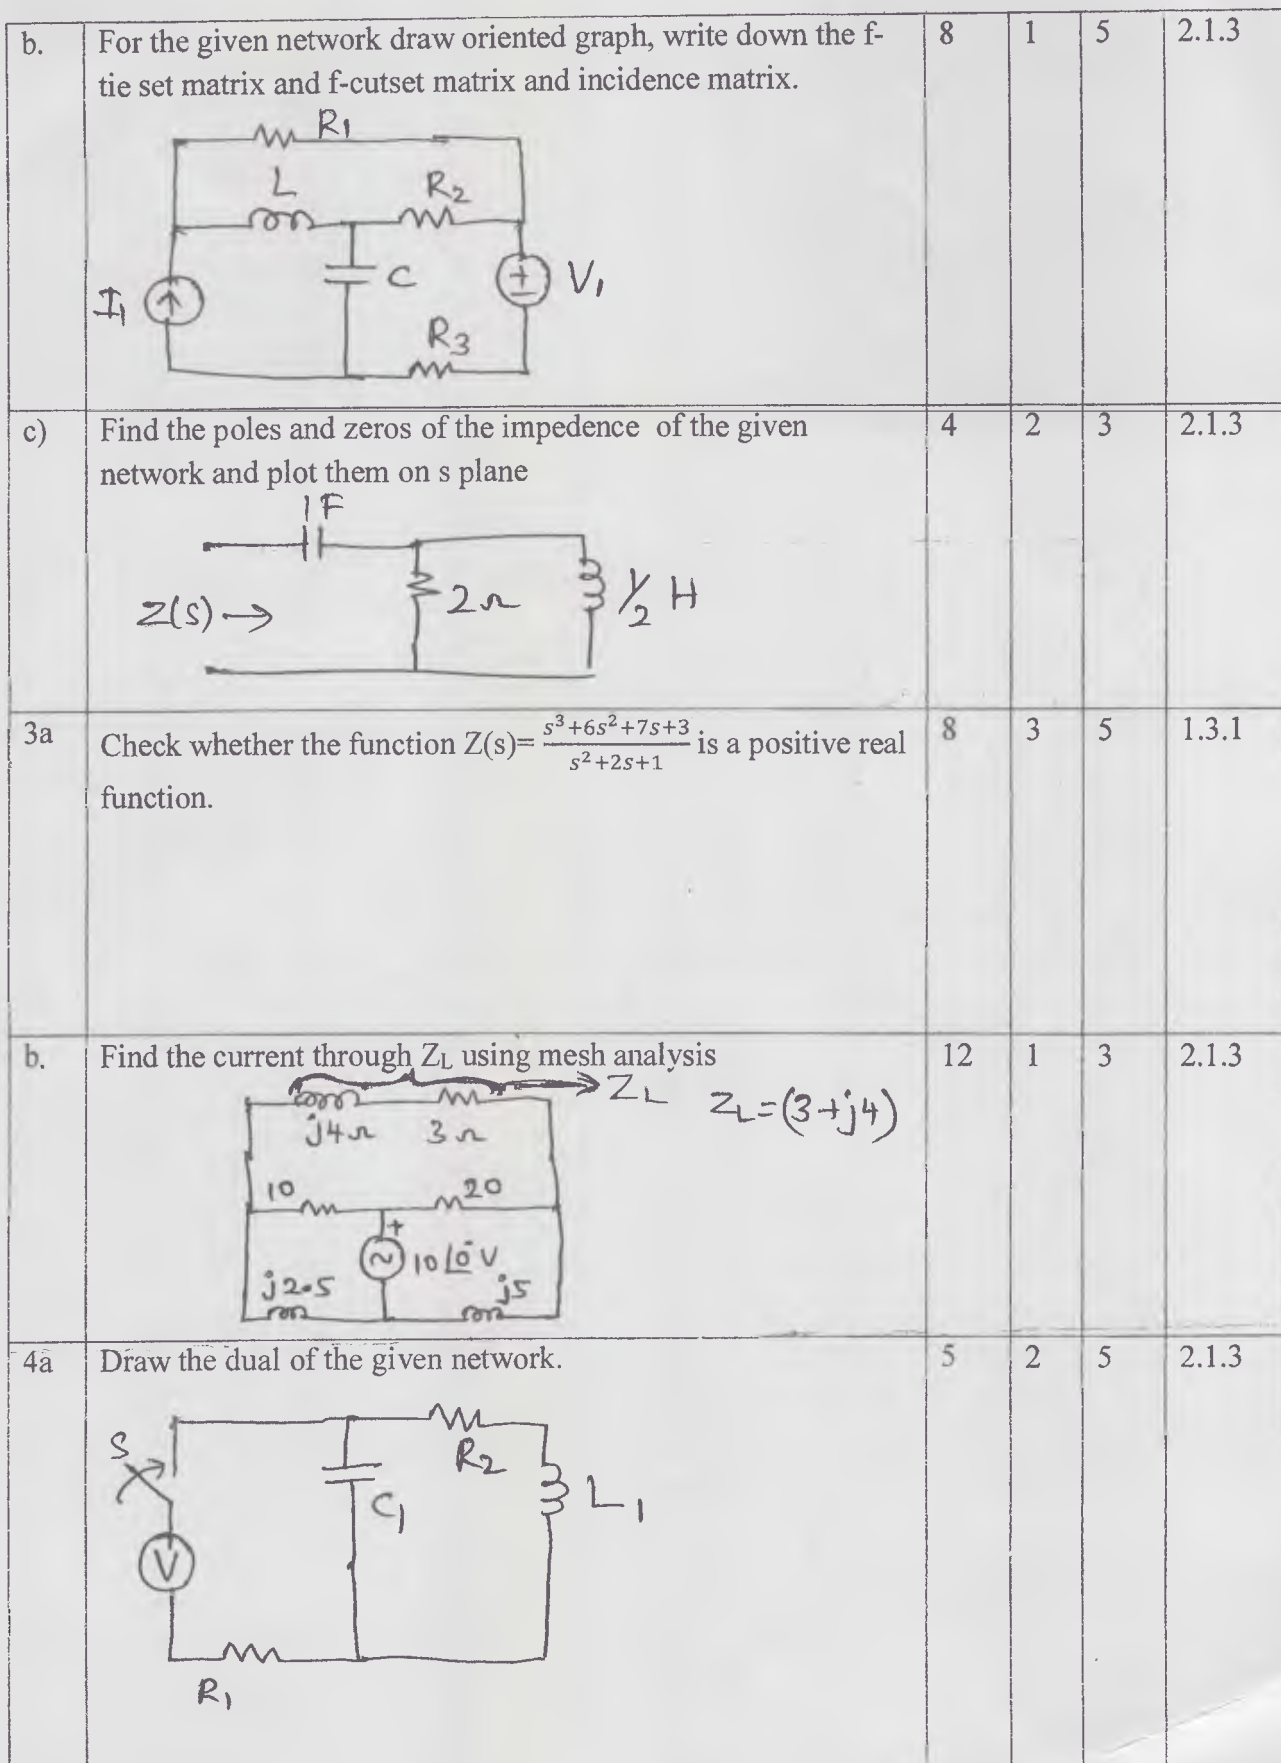 b. For the given network draw oriented graph, write down the f- 8 1 5 2.1.3
tie set matrix and f-cutset matrix and incidence matrix.
R1
L R2
I1 C V1
R3
c) Find the poles and zeros of the impedence of the given 4 2 3 2.1.3
network and plot them on s plane
1F
Z(s)→ 2Ω 1/2 H
3a Check whether the function Z(s)= (s³+6s²+7s+3)/(s²+2s+1) is a positive real 8 3 5 1.3.1
function.
b. Find the current through ZL using mesh analysis 12 1 3 2.1.3
ZL ZL=(3+j4)
j4Ω 3Ω
10 20
+
10∠0° V
j2.5 j5
4a Draw the dual of the given network. 5 2 5 2.1.3
S R2
C1 L1
V
R1